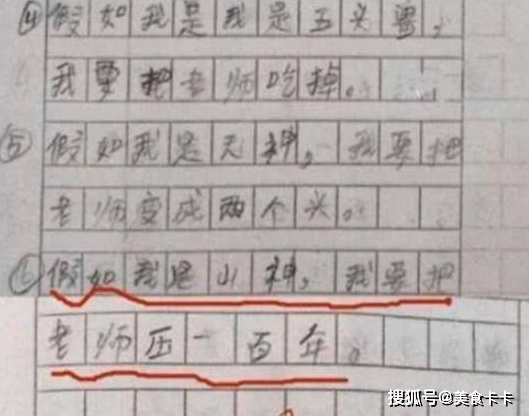 ④假如我是我是五头婆,
我要把老师吃掉。
⑤假如我是天神,我要把
老师变成两个头。
⑥假如我是山神,我要把
老师压一百年。
搜狐号@美食卡卡